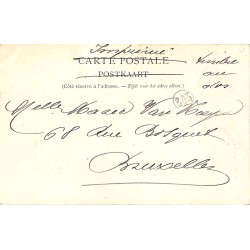 "Imprimé"
CARTE POSTALE
POSTKAART
(Côté réservé à l'adresse. — Zijde voor het adres alleen.)
timbre
au
dos
Melle Marie Van
68 Rue Bosquet
Bruxelles